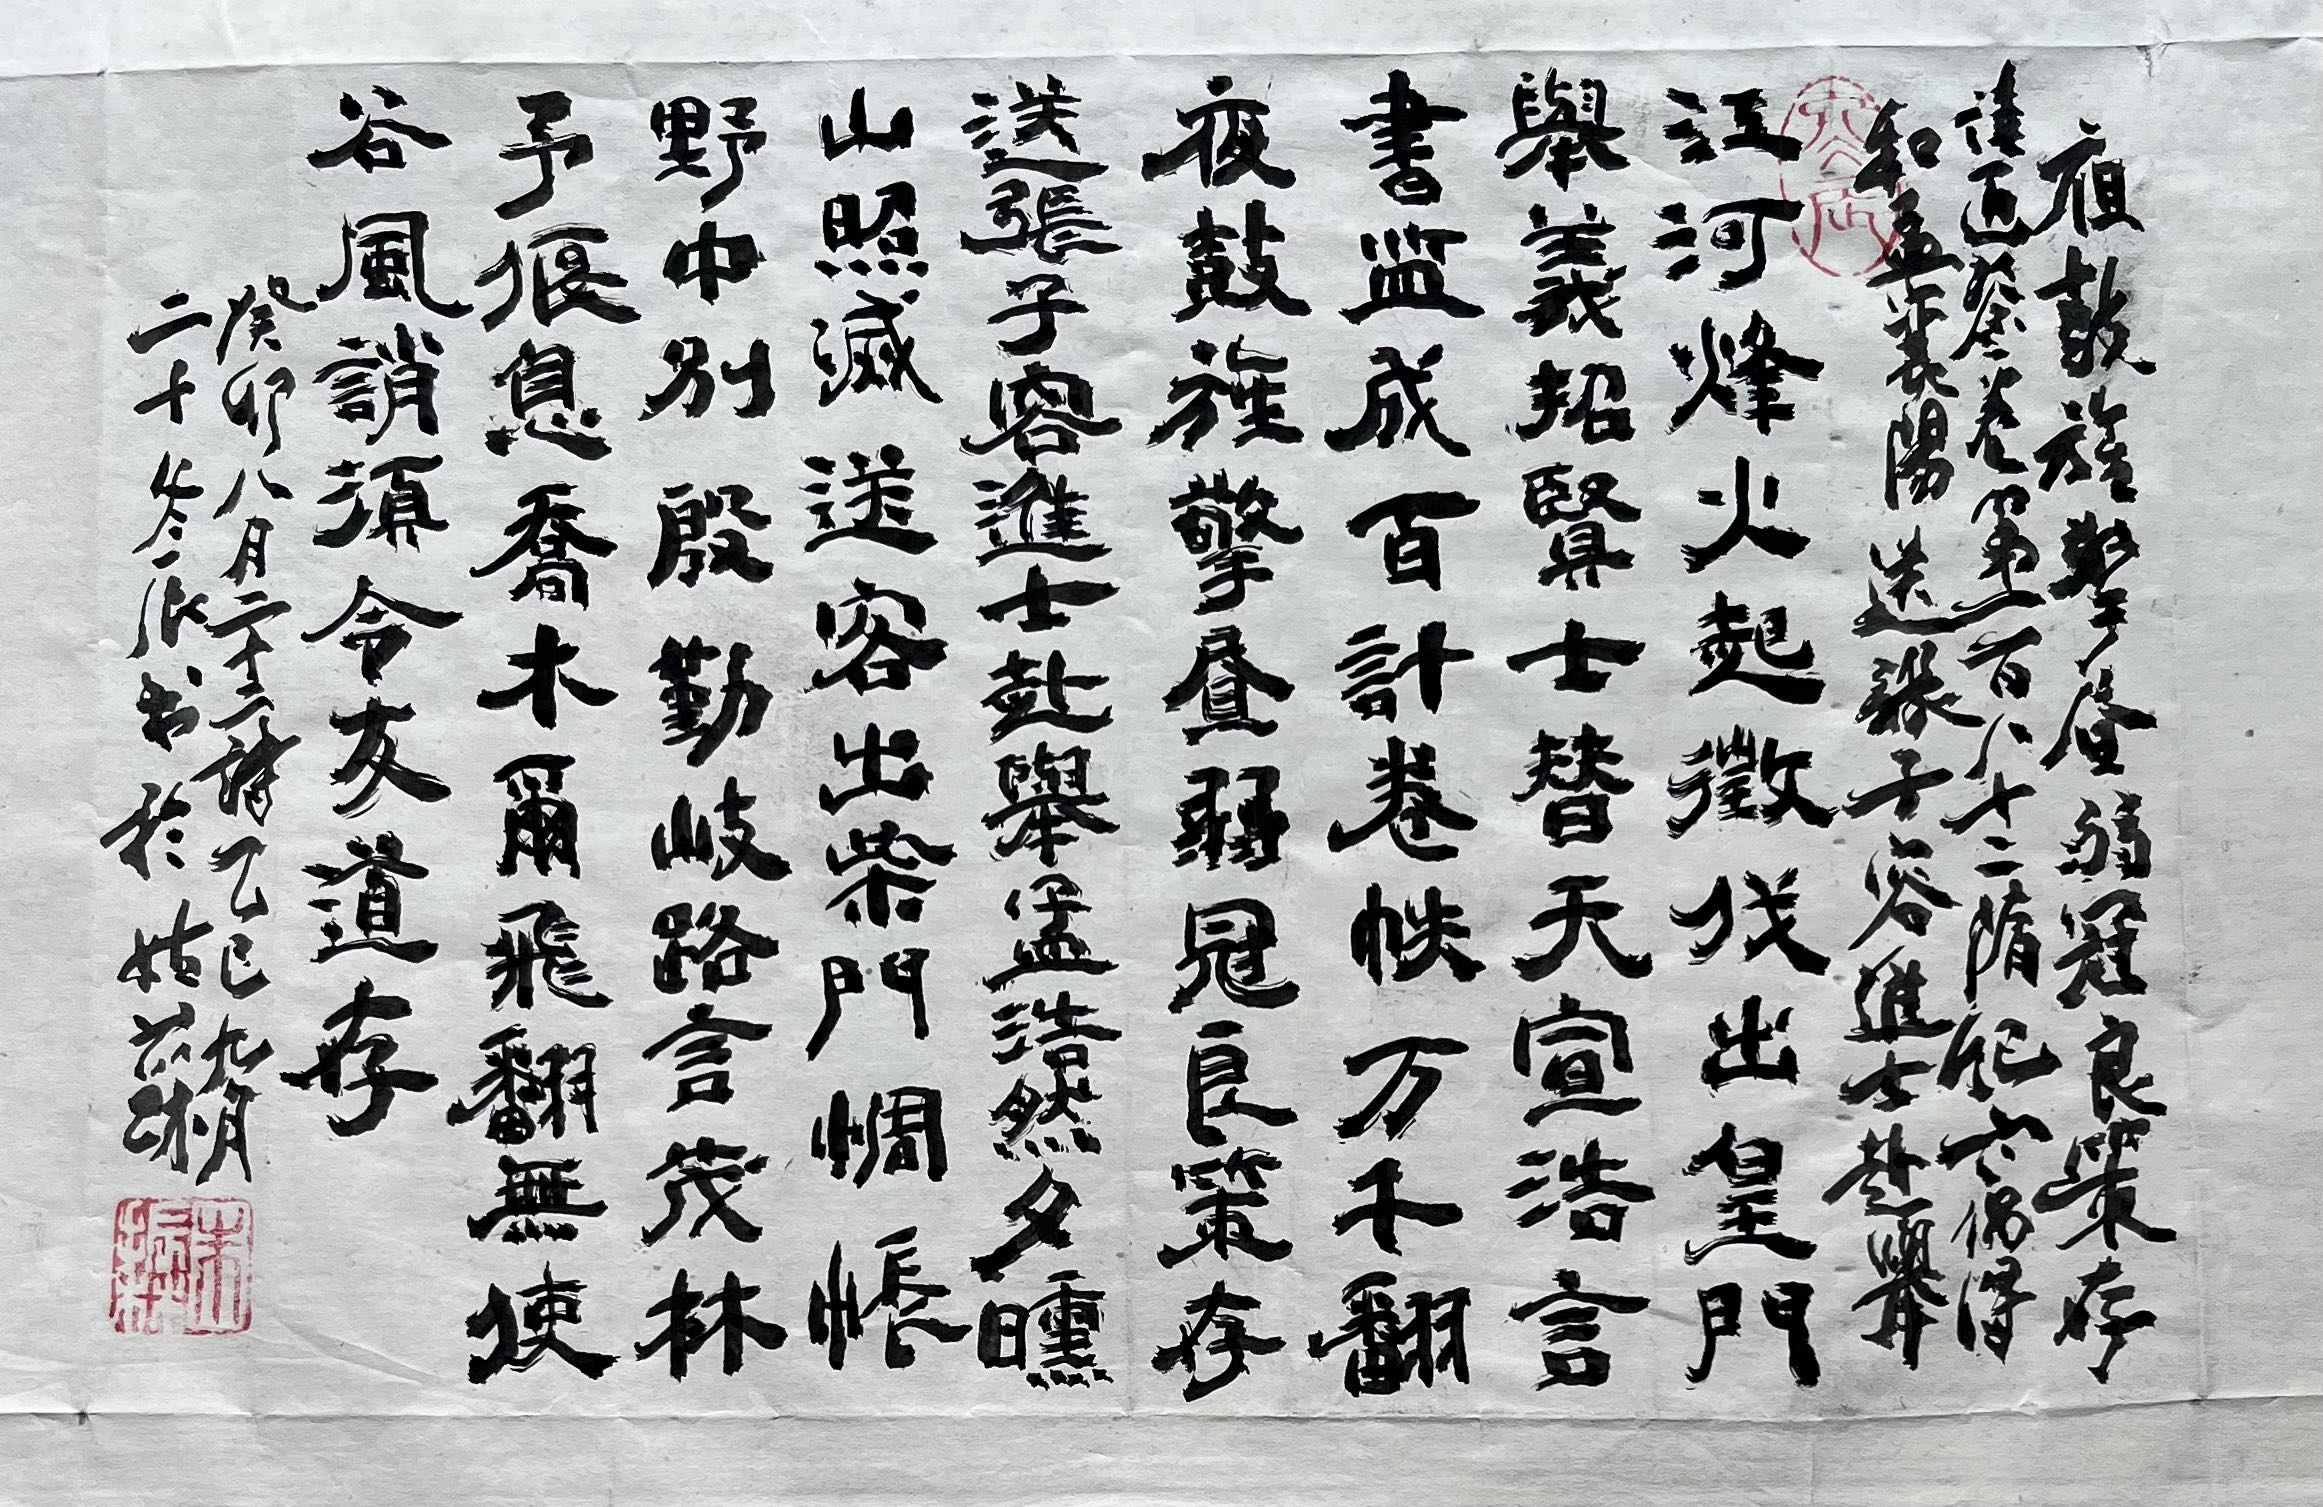 夜鼓旌擎昼弱冠良策存
读通鉴卷第一百八十二隋纪六偶得
和孟襄陽送張子容進士赴舉
江河烽火起徵伐出皇門
舉義招賢士替天宣浩言
書监成百計卷帙万千翻
夜鼓旌擎昼弱冠良策存
送張子容進士赴舉孟浩然夕曛
山照滅送客出柴門惆悵
野中别殷勤岐路言茂林
予偃息喬木爾飛翻無使
谷風誚須令友道存
癸卯八月二十二詩乙巳九月
二十書於